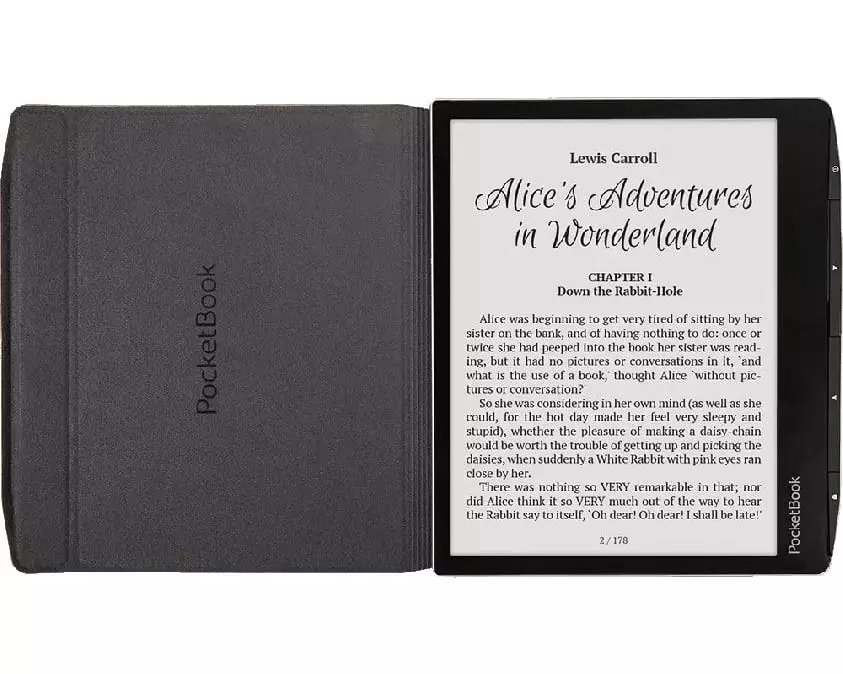 PocketBook
Lewis Carroll
Alice's Adventures
in Wonderland
CHAPTER I
Down the Rabbit-Hole
Alice was beginning to get very tired of sitting by her
sister on the bank, and of having nothing to do: once or
twice she had peeped into the book her sister was read-
ing, but it had no pictures or conversations in it, `and
what is the use of a book,' thought Alice `without pic-
tures or conversation?
So she was considering in her own mind (as well as she
could, for the hot day made her feel very sleepy and
stupid), whether the pleasure of making a daisy-chain
would be worth the trouble of getting up and picking the
daisies, when suddenly a White Rabbit with pink eyes ran
close by her.
There was nothing so VERY remarkable in that; nor
did Alice think it so VERY much out of the way to hear
the Rabbit say to itself, `Oh dear! Oh dear! I shall be late!'
2 / 178
PocketBook